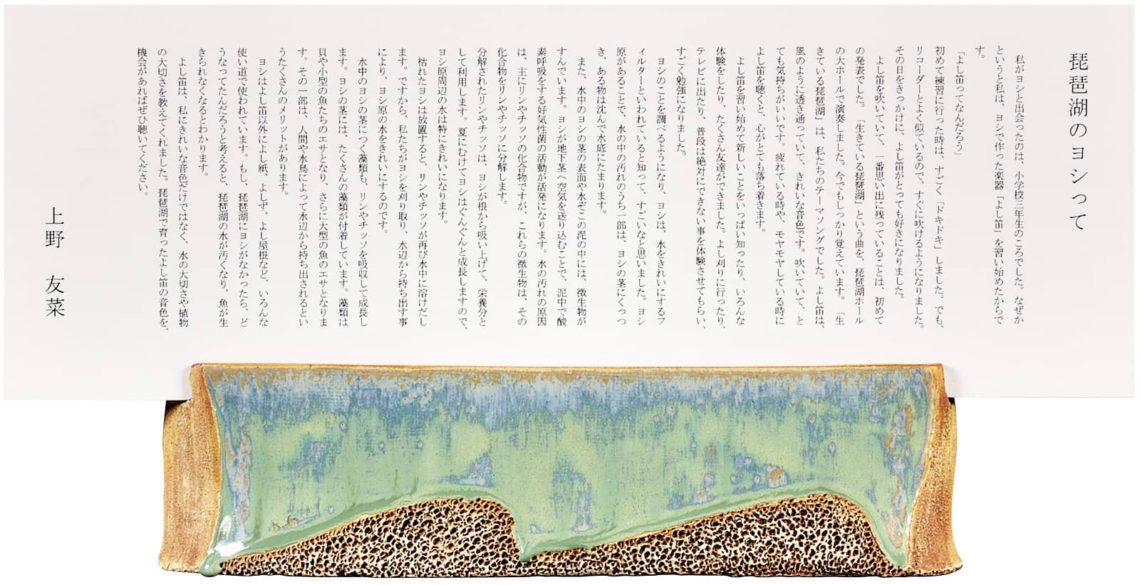 琵琶湖のヨシって
私がヨシと出会ったのは、小学校三年生のころでした。なぜか
というと私は、ヨシで作った楽器『よし笛』を習い始めたからで
す。
「よし笛ってなんだろう」
初めて練習に行った時は、すごく「ドキドキ」しました。でも、
リコーダーとよく似ているので、すぐに吹けるようになりました。
その日をきっかけに、よし笛がとっても好きになりました。
よし笛を吹いていて、一番思い出に残っていることは、初めて
の発表でした。「生きている琵琶湖」という曲を、琵琶湖ホール
の大ホールで演奏しました。今でもしっかり覚えています。「生
きている琵琶湖」は、私たちのテーマソングでした。よし笛は、
風のように透き通っていて、きれいな音色です。吹いていて、と
ても気持ちがいいです。疲れている時や、モヤモヤしている時に
よし笛を聴くと、心がとても落ち着きます。
よし笛を習い始めて新しいことをいっぱい知ったり、いろんな
体験をしたり、たくさん友達ができました。よし刈りに行ったり、
テレビに出たり、普段は絶対にできない事を体験させてもらい、
すごく勉強になりました。
ヨシのことを調べるようになり、ヨシは、水をきれいにするフ
ィルターといわれていると知って、すごいなと思いました。ヨシ
原があることで、水の中の汚れのうち一部は、ヨシの茎にくっつ
き、ある物は沈んで水底にたまります。
また、水中のヨシの茎の表面や水ぞこの泥の中には、微生物が
すんでいます。ヨシが地下茎へ空気を送り込むことで、泥中で酸
素呼吸をする好気性菌の活動が活発になります。水の汚れの原因
は、主にリンやチッソの化合物ですが、これらの微生物は、その
化合物をリンやチッソに分解します。
分解されたリンやチッソは、ヨシが根から吸い上げて、栄養分と
して利用します。夏にむけてヨシはぐんぐんと成長しますので、
ヨシ原周辺の水は特にきれいになります。
枯れたヨシは放置すると、リンやチッソが再び水中に溶けだし
ます。ですから、私たちがヨシを刈り取り、水辺から持ち出す事
により、ヨシ原の水をきれいにするのです。
水中のヨシの茎につく藻類も、リンやチッソを吸収して成長し
ます。ヨシの茎には、たくさんの藻類が付着しています。藻類は
貝や小型の魚たちのエサとなり、さらに大型の魚のエサとなりま
す。その一部は、人間や水鳥によって水辺から持ち出されるとい
うたくさんのメリットがあります。
ヨシはよし笛以外によし紙、よしず、よし屋根など、いろんな
使い道で使われています。もし、琵琶湖にヨシがなかったら、ど
うなってたんだろうと考えると、琵琶湖の水が汚くなり、魚が生
きられなくなるとわかります。
よし笛は、私にきれいな音色だけではなく、水の大切さや植物
の大切さを教えてくれました。琵琶湖で育ったよし笛の音色を、
機会があればぜひ聴いてください。
上野 友菜